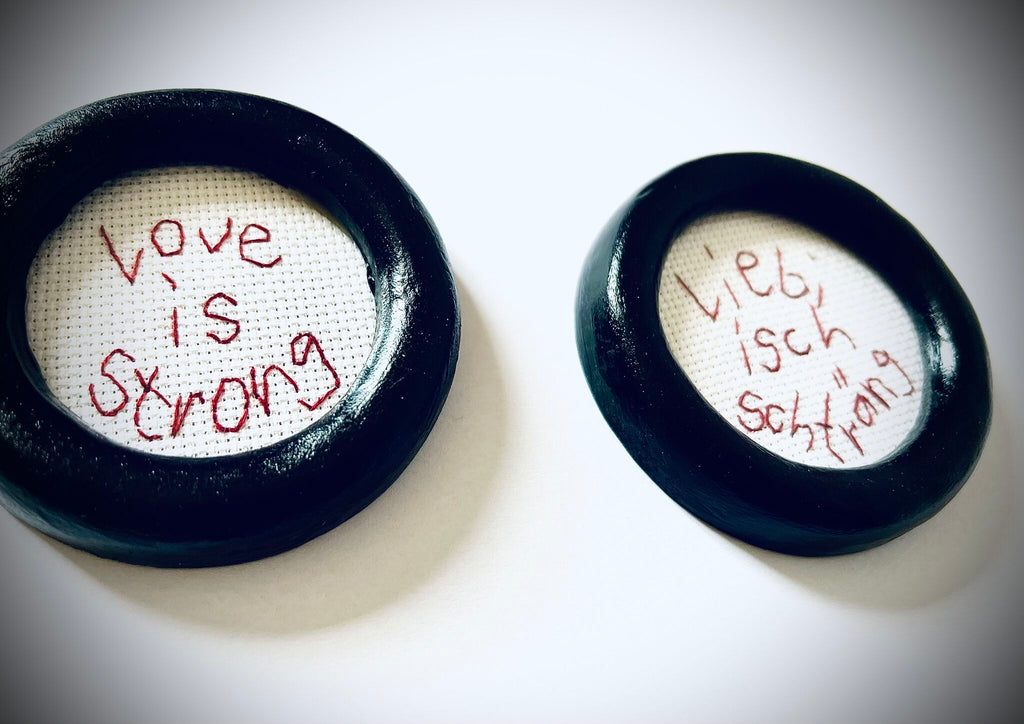 Love
is
Strong
Liebi
isch
Schträng